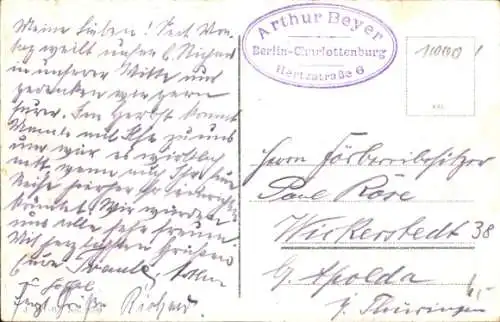 Meine Lieben! Seit Mon-
tag weilt unser l. Richard
in unserer Mitte und
gedenken wir gern
Eurer. Im Herbst kommt
mit Ilse zu uns
und wär es wirklich
nett wenn auch Ihr eine
Reise hierher
könntet. Wir würden
uns alle sehr freuen.
Mit herzlichsten Grüßen
Eure
Herzl. Grüße Richard
Arthur Beyer
Berlin-Charlottenburg
Hertzstraße 6
11000!
Herrn Färbereibesitzer
Paul Röse
Wickerstedt 38
b. Apolda
i. Thüringen